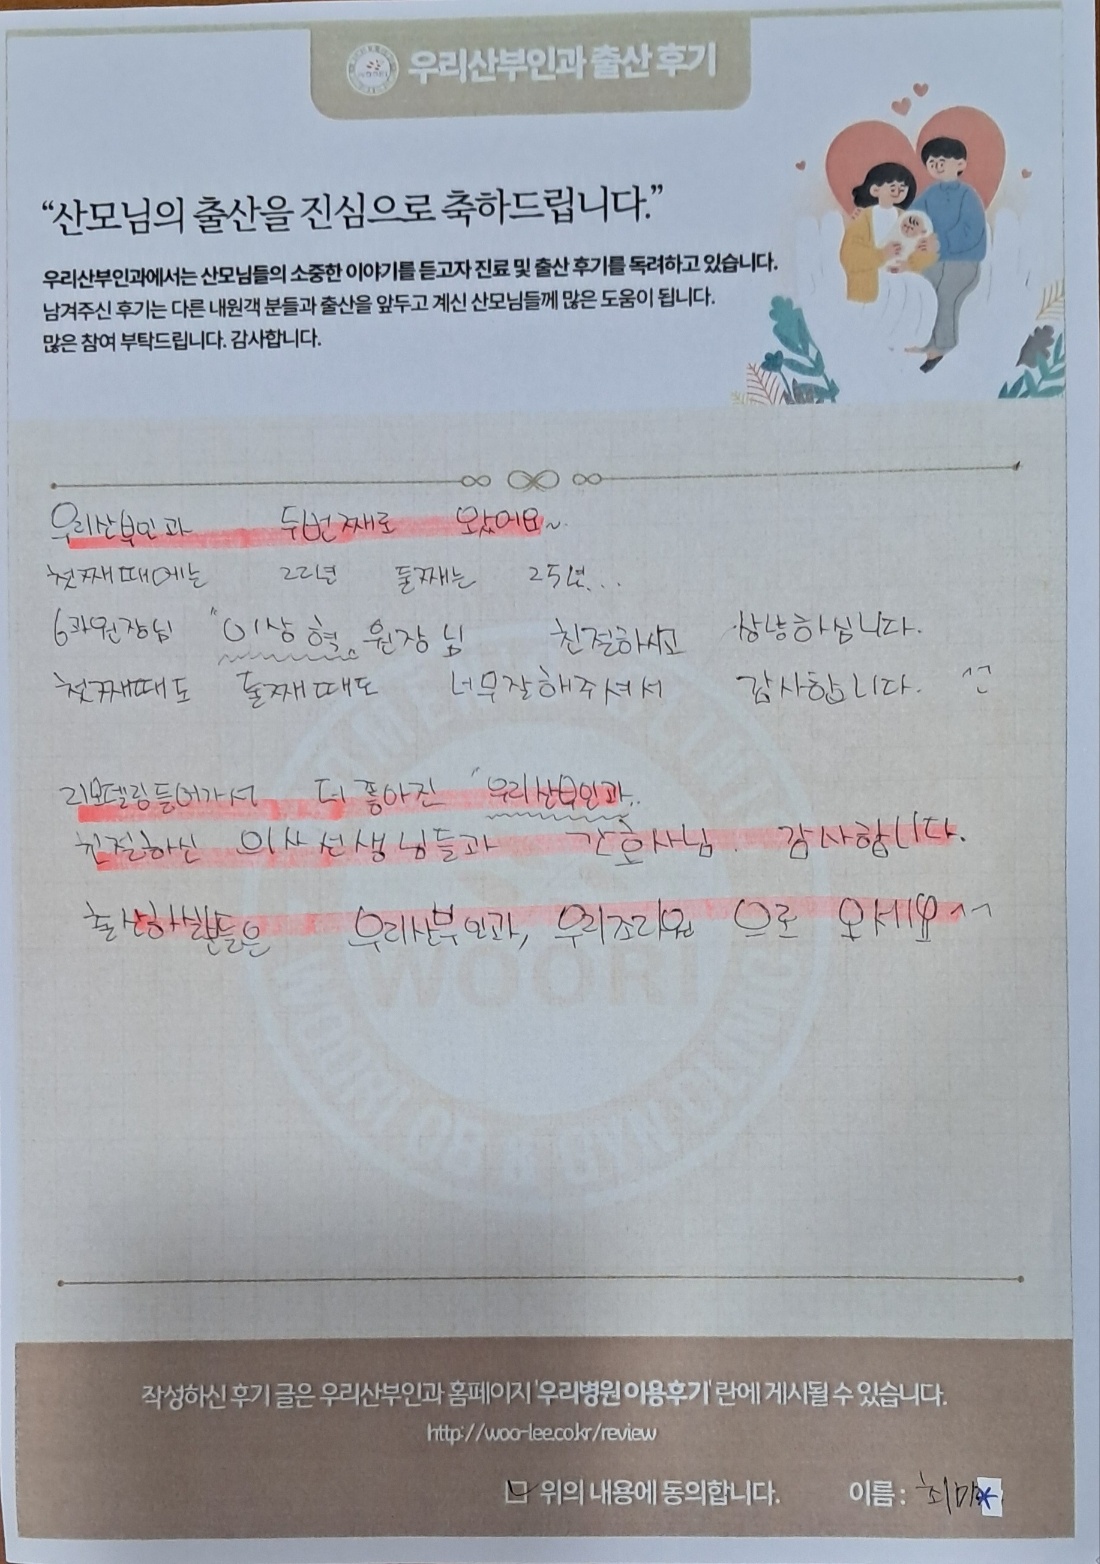 우리산부인과 출산 후기
“산모님의 출산을 진심으로 축하드립니다.”
우리산부인과에서는 산모님들의 소중한 이야기를 듣고자 진료 및 출산 후기를 독려하고 있습니다.
남겨주신 후기는 다른 내원객 분들과 출산을 앞두고 계신 산모님들께 많은 도움이 됩니다.
많은 참여 부탁드립니다. 감사합니다.
우리산부인과 두번째로 왔어요~
첫째때에는 22년 둘째는 25년...
6과원장님 "이상혈 원장님 친절하시고 상냥하십니다.
첫째때도 둘째때도 너무잘해주셔서 감사합니다. ^^
리모델링들어가서 더 좋아진 "우리산부인과..
친절하신 의사선생님들과 간호사님. 감사합니다.
출산하실분들은 우리산부인과, 우리조리원 으로 오세요^^
WOORI
WOORI OB & GYN CLINIC
작성하신 후기 글은 우리산부인과 홈페이지 '우리병원 이용후기' 란에 게시될 수 있습니다.
http://woo-lee.co.kr/review
위의 내용에 동의합니다. 이름 : 최미*